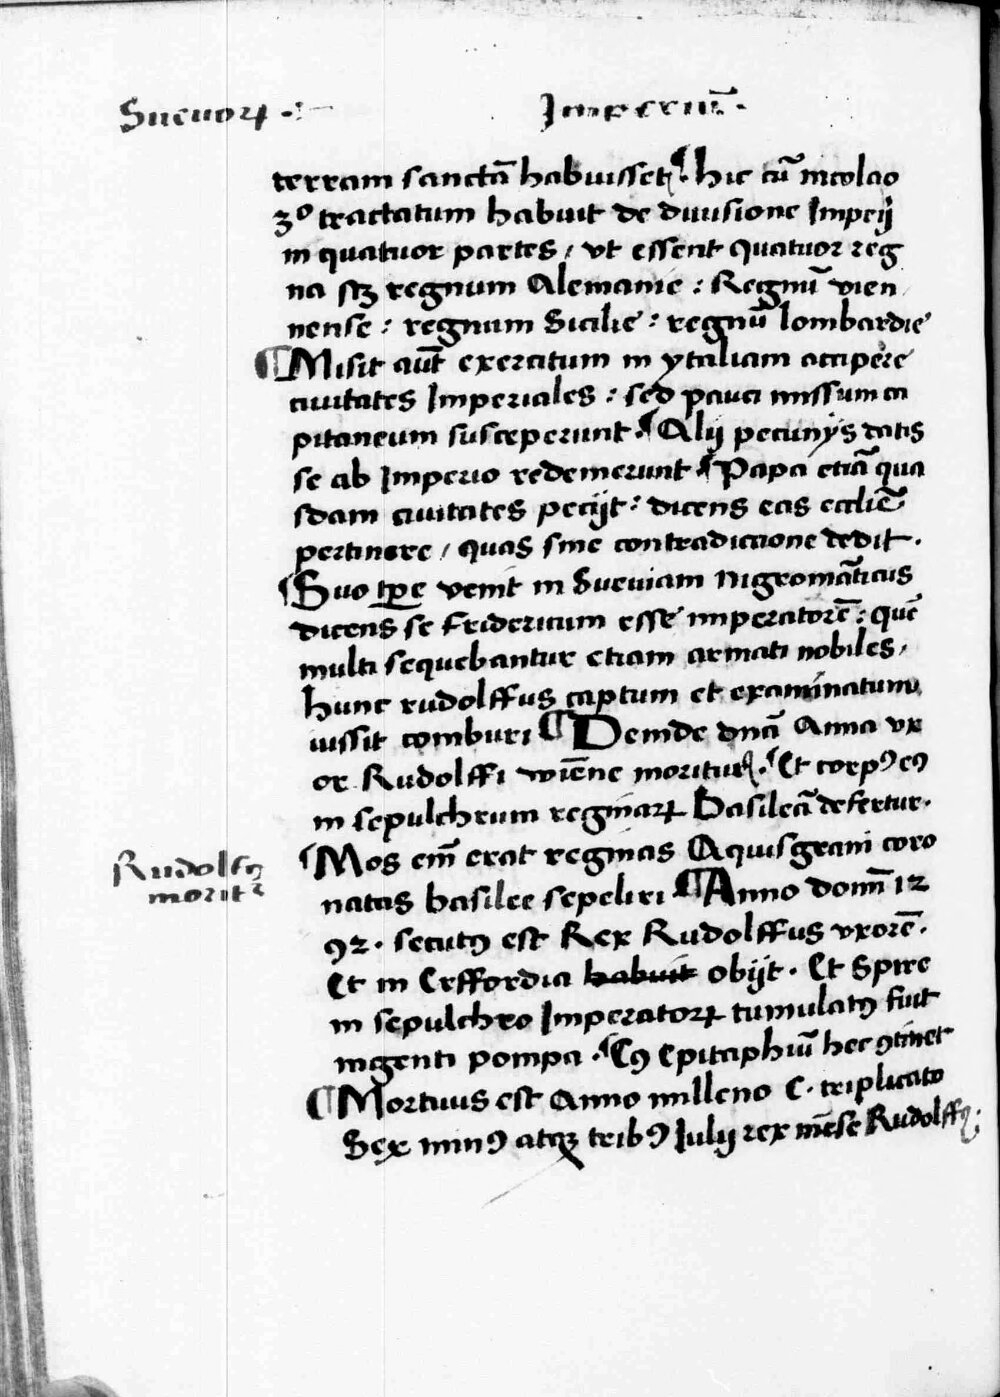 Sueuoꝝ .:
Imperiū .
terram sanctā habuisset ¶ hic cū nicolao
3º tractatum habuit de diuisione Imperij
in quatuor partes / vt essent quatuor reg
na scꝫ regnum Alemanie : Regnū vien
nense : regnum Sicilie : regnū lombardie
¶ Misit aūt exercitum in ytaliam accipere
ciuitates Imperiales : sed pauci missum ca
pitaneum susceperunt . ¶ Alij pecunijs datis
se ab Imperio redemerunt ¶ Papa etiā qua
sdam ciuitates pecijt : dicens eas ecclīē
pertinere / quas sine contradiccione dedit .
¶ Suo tꝑe venit in Sueuiam nigromāticus
dicens se fridericum esse imperatorē : quē
multi sequebantur etiam armati nobiles /
hunc rudolffus captum et examinatum
iussit comburi ¶ Deinde dnā Anna vx
or Rudolffi wiēne moritur . ¶ Et corpꝰ eꝰ
in sepulchrum reginaꝝ Basileā defertur .
¶ Mos em̄ erat reginas Aquisgrani coro
natas basilee sepeliri ¶ Anno domī 12
92 . secutꝰ est Rex Rudolffus vxorē .
Et in Erffordia habuit obijt . Et Spire
in sepulchro Imperatoꝝ tumulatꝰ fuit
ingenti pompa . ¶ Cꝰ Epitaphiū hec ꝯtinet
¶ Mortuus est Anno milleno C . triplicato
Sex minꝰ atqꝫ tribꝰ Iulij rex mēse Rudolffꝰ ;
Rudolfꝰ
moritᷣ